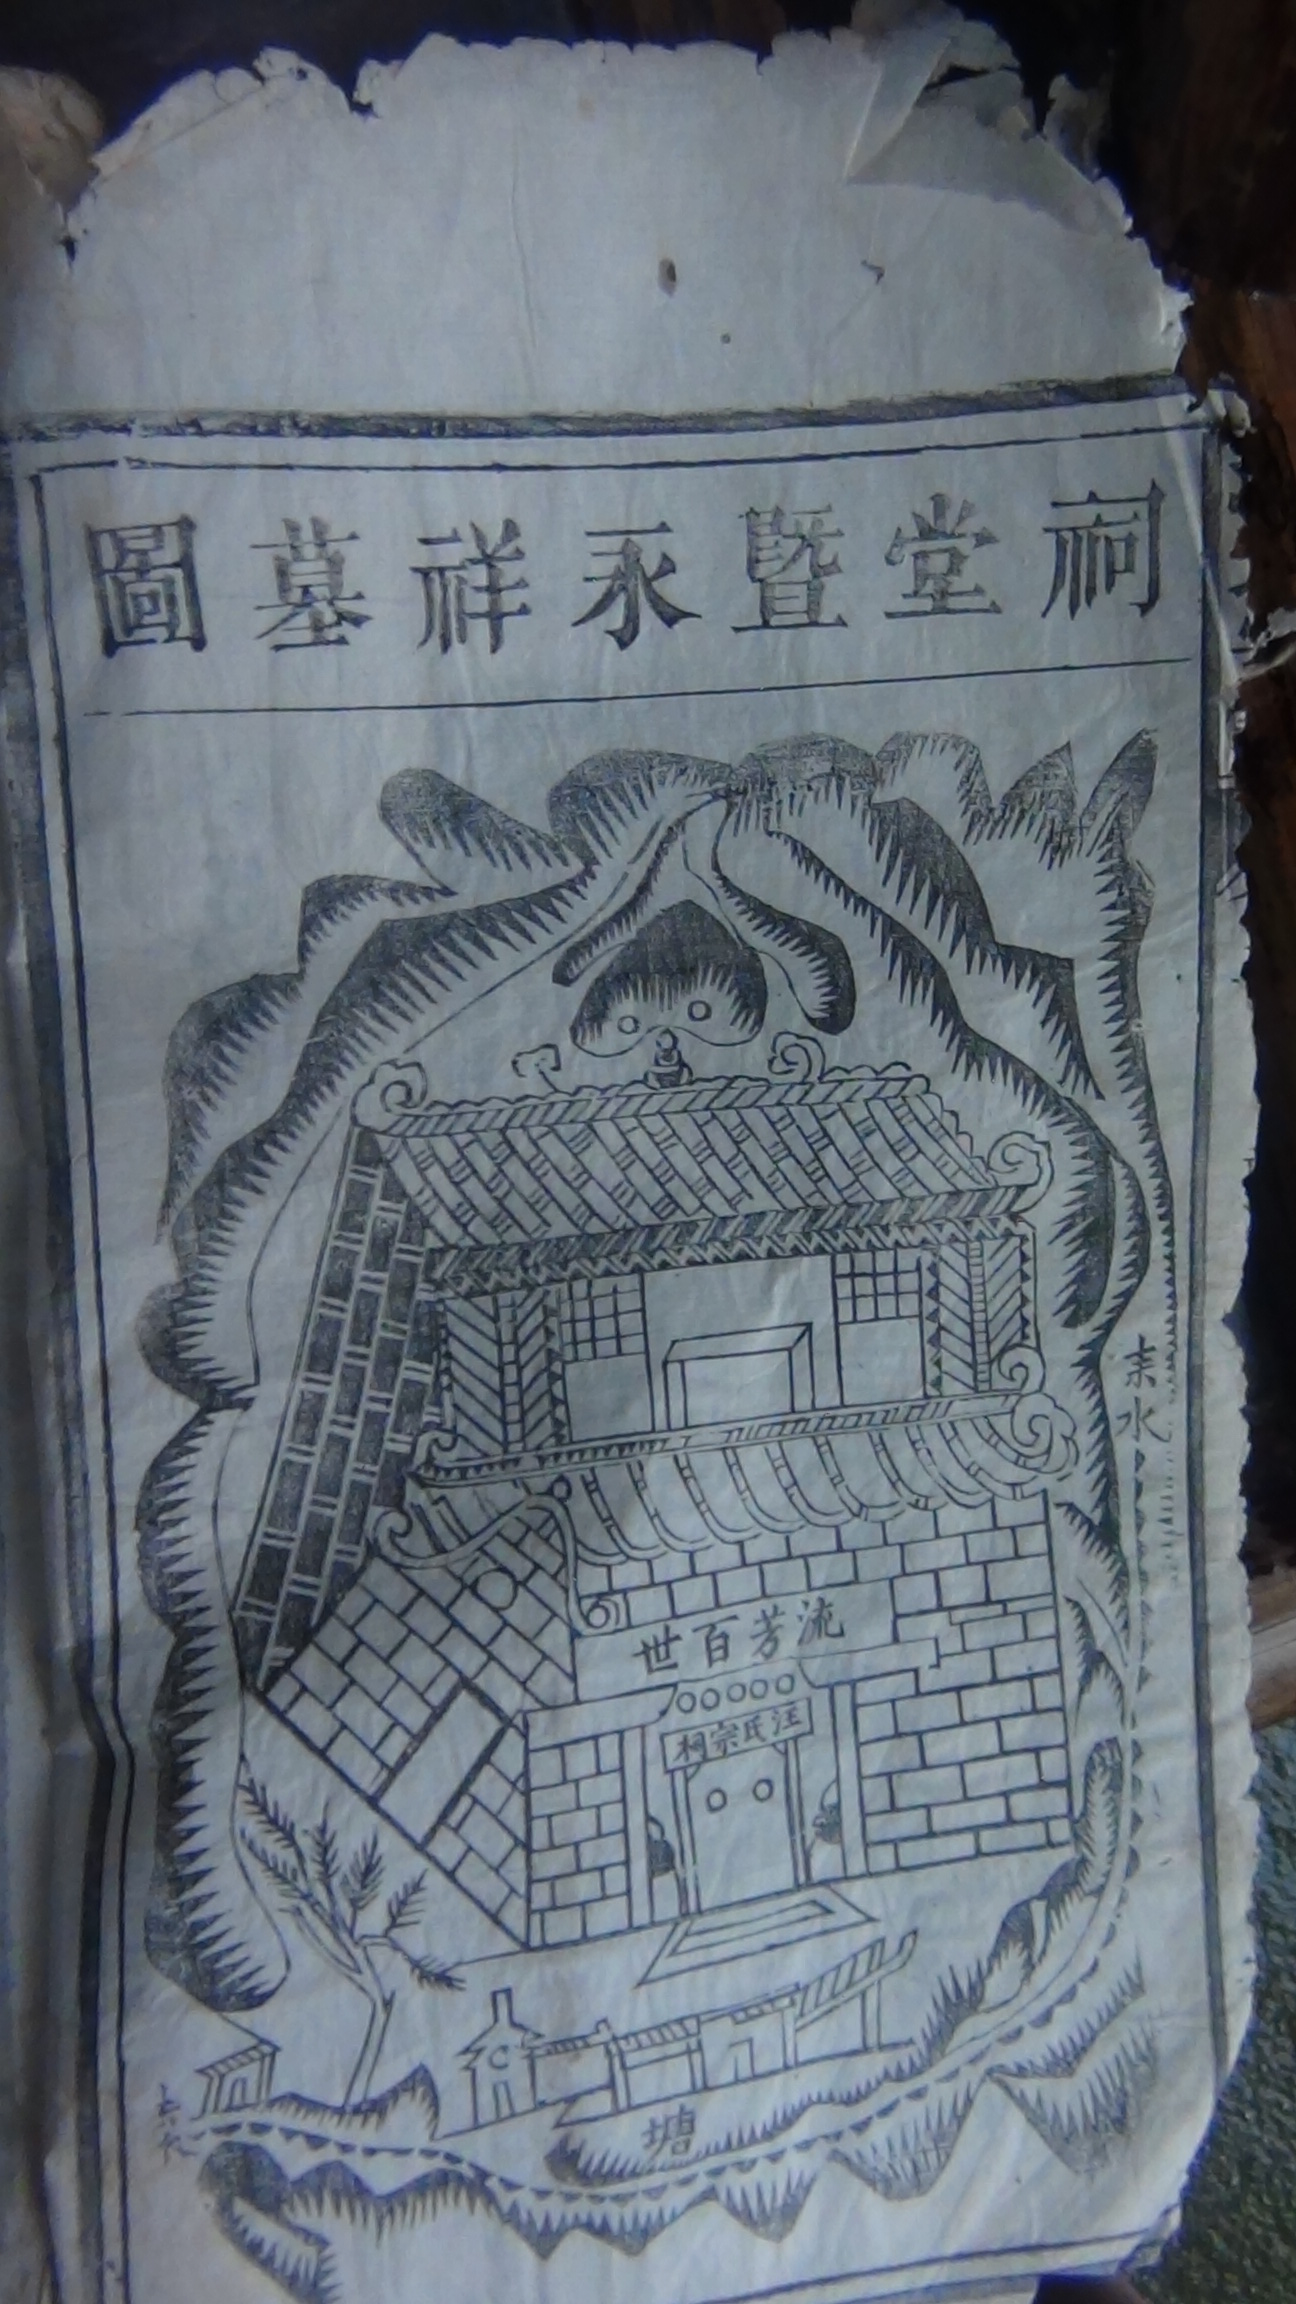 祠堂暨永祥墓圖
來水
流芳百世
汪氏宗祠
塘